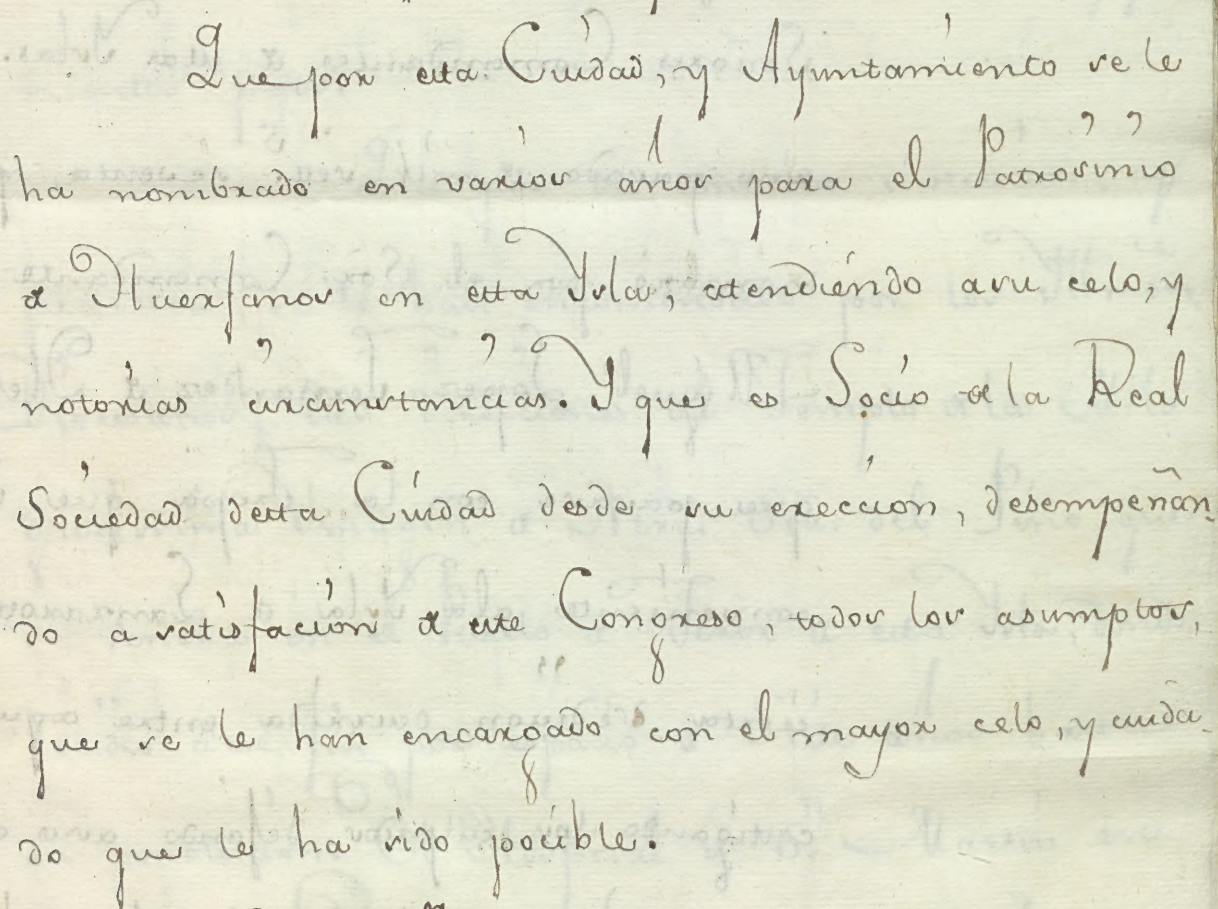 Que por esta Ciudad, y Ayuntamiento se le
ha nombrado en varios años para el Patrosinio
de Huerfanos en esta Ysla, atendiendo asu celo, y
notorias circunstancias. Y que es Socio de la Real
Sociedad desta Ciudad desde su ereccion, desempeñan-
do a satisfacion de este Congreso, todos los asumptos,
que se le han encargado con el mayor celo, y cuida-
do que le ha sido pocible.